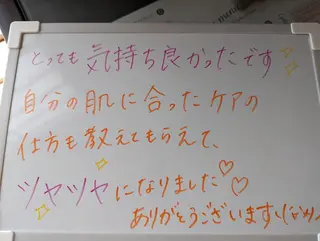 とっても気持ち良かったです
自分の肌に合ったケアの
仕方も教えてもらえて、
ツヤツヤになりました♡♡
ありがとうございます